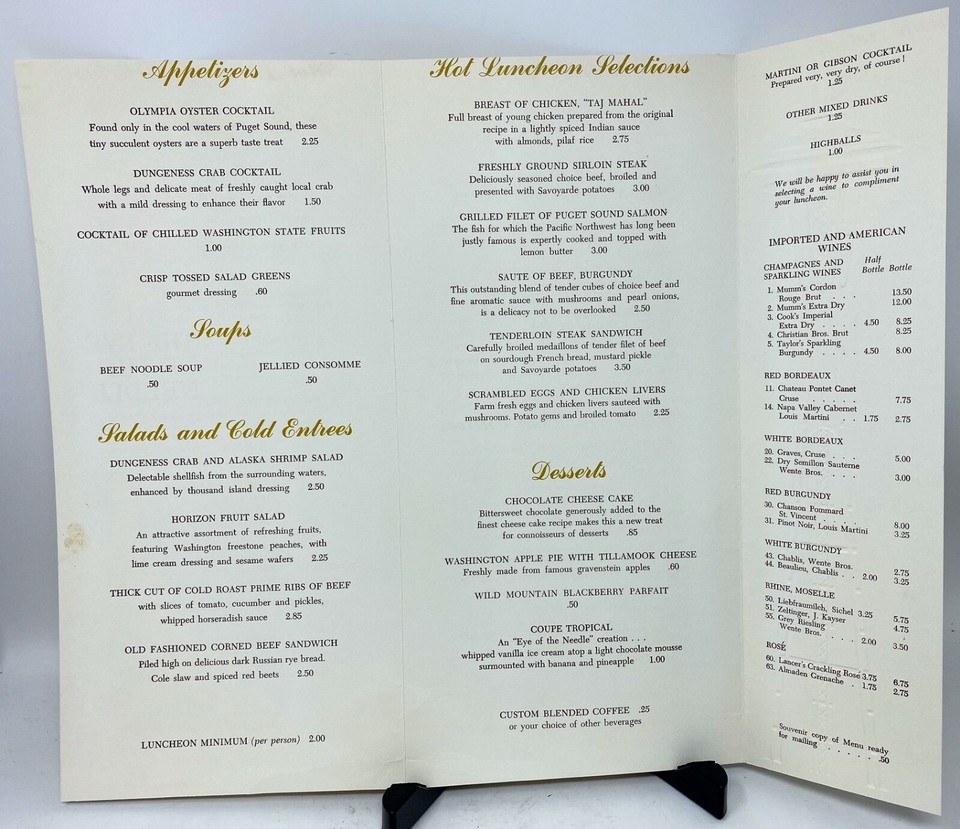 Appetizers
OLYMPIA OYSTER COCKTAIL
Found only in the cool waters of Puget Sound, these
tiny succulent oysters are a superb taste treat 2.25
DUNGENESS CRAB COCKTAIL
Whole legs and delicate meat of freshly caught local crab
with a mild dressing to enhance their flavor 1.50
COCKTAIL OF CHILLED WASHINGTON STATE FRUITS
1.00
CRISP TOSSED SALAD GREENS
gourmet dressing .60
Soups
BEEF NOODLE SOUP
.50
JELLIED CONSOMME
.50
Salads and Cold Entrees
DUNGENESS CRAB AND ALASKA SHRIMP SALAD
Delectable shellfish from the surrounding waters,
enhanced by thousand island dressing 2.50
HORIZON FRUIT SALAD
An attractive assortment of refreshing fruits,
featuring Washington freestone peaches, with
lime cream dressing and sesame wafers 2.25
THICK CUT OF COLD ROAST PRIME RIBS OF BEEF
with slices of tomato, cucumber and pickles,
whipped horseradish sauce 2.85
OLD FASHIONED CORNED BEEF SANDWICH
Piled high on delicious dark Russian rye bread.
Cole slaw and spiced red beets 2.50
LUNCHEON MINIMUM (per person) 2.00
Hot Luncheon Selections
BREAST OF CHICKEN, "TAJ MAHAL"
Full breast of young chicken prepared from the original
recipe in a lightly spiced Indian sauce
with almonds, pilaf rice 2.75
FRESHLY GROUND SIRLOIN STEAK
Deliciously seasoned choice beef, broiled and
presented with Savoyarde potatoes 3.00
GRILLED FILET OF PUGET SOUND SALMON
The fish for which the Pacific Northwest has long been
justly famous is expertly cooked and topped with
lemon butter 3.00
SAUTE OF BEEF, BURGUNDY
This outstanding blend of tender cubes of choice beef and
fine aromatic sauce with mushrooms and pearl onions,
is a delicacy not to be overlooked 2.50
TENDERLOIN STEAK SANDWICH
Carefully broiled medaillons of tender filet of beef
on sourdough French bread, mustard pickle
and Savoyarde potatoes 3.50
SCRAMBLED EGGS AND CHICKEN LIVERS
Farm fresh eggs and chicken livers sauteed with
mushrooms. Potato gems and broiled tomato 2.25
Desserts
CHOCOLATE CHEESE CAKE
Bittersweet chocolate generously added to the
finest cheese cake recipe makes this a new treat
for connoisseurs of desserts .85
WASHINGTON APPLE PIE WITH TILLAMOOK CHEESE
Freshly made from famous gravenstein apples .60
WILD MOUNTAIN BLACKBERRY PARFAIT
.50
COUPE TROPICAL
An "Eye of the Needle" creation . . .
whipped vanilla ice cream atop a light chocolate mousse
surmounted with banana and pineapple 1.00
CUSTOM BLENDED COFFEE .25
or your choice of other beverages
MARTINI OR GIBSON COCKTAIL
Prepared very, very dry, of course!
1.25
OTHER MIXED DRINKS
1.25
HIGHBALLS
1.00
We will be happy to assist you in
selecting a wine to compliment
your luncheon.
IMPORTED AND AMERICAN
WINES
CHAMPAGNES AND
SPARKLING WINES
Half
Bottle Bottle
1. Mumm's Cordon
Rouge Brut . . . 13.50
2. Mumm's Extra Dry 12.00
3. Cook's Imperial
Extra Dry . . . . 4.50 8.25
4. Christian Bros. Brut 8.25
5. Taylor's Sparkling
Burgundy . . . . 4.50 8.00
RED BORDEAUX
11. Chateau Pontet Canet
Cruse . . . . . 7.75
14. Napa Valley Cabernet
Louis Martini . . 1.75 2.75
WHITE BORDEAUX
20. Graves, Cruse . . . 5.00
22. Dry Semillon Sauterne
Wente Bros. . . . 3.00
RED BURGUNDY
30. Chanson Pommard
St. Vincent . . . . 8.00
31. Pinot Noir, Louis Martini 3.25
WHITE BURGUNDY
43. Chablis, Wente Bros. 2.75
44. Beaulieu, Chablis . . 2.00 3.25
RHINE, MOSELLE
50. Liebfraumilch, Sichel 3.25 5.75
51. Zeltinger, J. Kayser 4.75
55. Grey Riesling
Wente Bros. . . . . 2.00 3.50
ROSÉ
60. Lancer's Crackling Rosé 3.75 6.75
63. Almaden Grenache . 1.75 2.75
Souvenir copy of Menu ready
for mailing . . . . . . .50